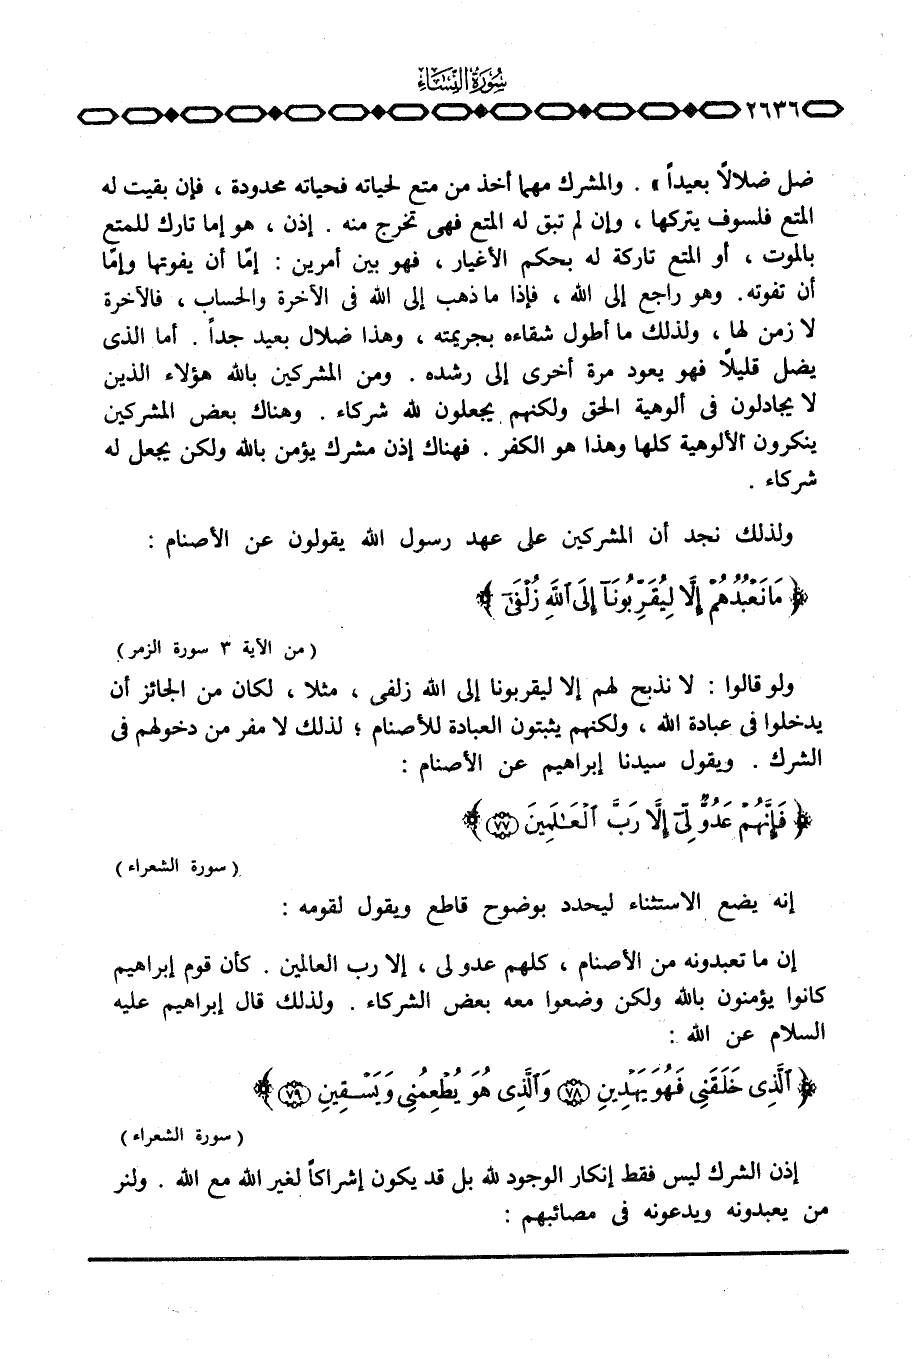 سُورَةُ النِّسَاءِ
٢٦٣٦
ضل ضلالاً بعيداً » . والمشرك مهما أخذ من متع لحياته فحياته محدودة ، فإن بقيت له
المتع فلسوف يتركها ، وإن لم تبق له المتع فهى تخرج منه . إذن ، هو إما تارك للمتع
بالموت ، أو المتع تاركة له بحكم الأغيار ، فهو بين أمرين : إمَّا أن يفوتها وإمَّا
أن تفوته. وهو راجع إلى الله ، فإذا ما ذهب إلى الله فى الآخرة والحساب ، فالآخرة
لا زمن لها ، ولذلك ما أطول شقاءه بجريمته ، وهذا ضلال بعيد جداً . أما الذى
يضل قليلاً فهو يعود مرة أخرى إلى رشده . ومن المشركين بالله هؤلاء الذين
لا يجادلون فى ألوهية الحق ولكنهم يجعلون لله شركاء . وهناك بعض المشركين
ينكرون الألوهية كلها وهذا هو الكفر . فهناك إذن مشرك يؤمن بالله ولكن يجعل له
شركاء .
ولذلك نجد أن المشركين على عهد رسول الله يقولون عن الأصنام :
﴿ مَا نَعْبُدُهُمْ إِلَّا لِيُقَرِّبُونَآ إِلَى ٱللَّهِ زُلْفَىٰٓ ﴾
( من الآية ٣ سورة الزمر )
ولو قالوا : لا نذبح لهم إلا ليقربونا إلى الله زلفى ، مثلا ، لكان من الجائز أن
يدخلوا فى عبادة الله ، ولكنهم يثبتون العبادة للأصنام ؛ لذلك لا مفر من دخولهم فى
الشرك . ويقول سيدنا إبراهيم عن الأصنام :
﴿ فَإِنَّهُمْ عَدُوٌّ لِّىٓ إِلَّا رَبَّ ٱلْعَـٰلَمِينَ ٧٧ ﴾
( سورة الشعراء )
إنه يضع الاستثناء ليحدد بوضوح قاطع ويقول لقومه :
إن ما تعبدونه من الأصنام ، كلهم عدو لى ، إلا رب العالمين . كأن قوم إبراهيم
كانوا يؤمنون بالله ولكن وضعوا معه بعض الشركاء . ولذلك قال إبراهيم عليه
السلام عن الله :
﴿ ٱلَّذِى خَلَقَنِى فَهُوَ يَهْدِينِ ٧٨ وَٱلَّذِى هُوَ يُطْعِمُنِى وَيَسْقِينِ ٧٩ ﴾
( سورة الشعراء )
إذن الشرك ليس فقط إنكار الوجود لله بل قد يكون إشراكاً لغير الله مع الله . ولنر
من يعبدونه ويدعونه فى مصائبهم :